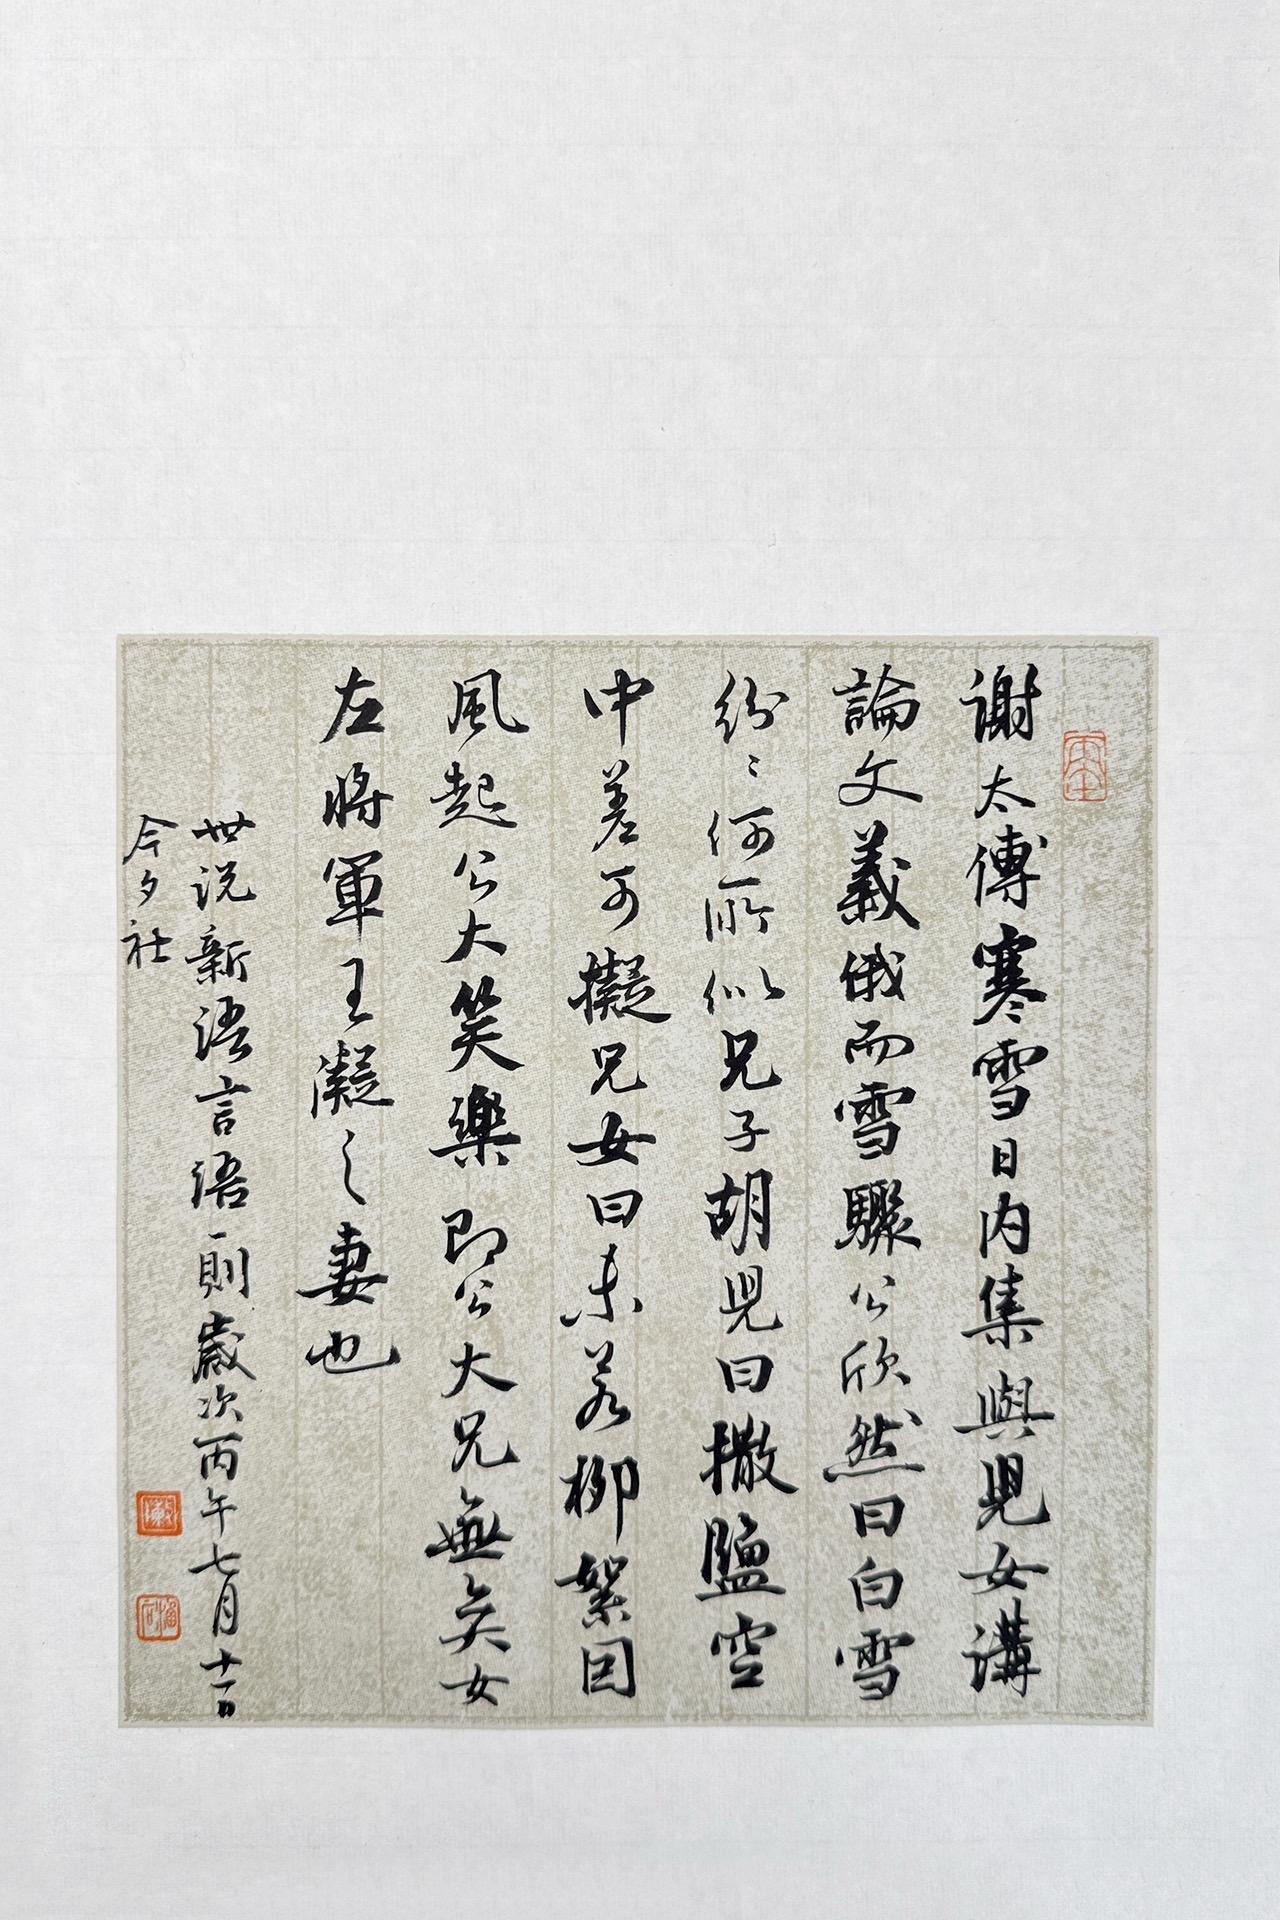 謝太傅寒雪日内集與児女講
論文義俄而雪驟公欣然曰白雪
紛〻何所似兄子胡児曰撒鹽空
中差可擬兄女曰未若柳絮因
風起公大笑樂即公大兄無奕女
左將軍王凝之妻也
世说新语言语一則歲次丙午七月十一日
今夕社